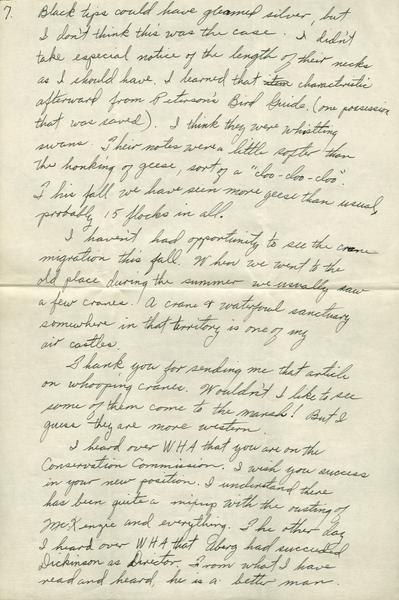 7.
Black tips could have gleamed silver, but
I don't think this was the case. I didn't
take especial notice of the length of their necks
as I should have. I learned that charactistic
afterward from Peterson's Bird Guide. (one possession
that was saved). I think they were whistling
swans. Their notes were a little softer than
the honking of geese, sort of a "cloo-cloo-cloo".
This fall we have seen more geese than usual,
probably 15 flocks in all.
I haven't had opportunity to see the crane
migration this fall. When we went to the
old place during the summer we usually saw
a few cranes. A crane & waterfowl sanctuary
somewhere in that territory is one of my
air castles.
Thank you for sending me that article
on whooping cranes. Wouldn't I like to see
some of them come to the marsh! But I
guess they are more western.
I heard over WHA that you are on the
Conservation Commission. I wish you success
in your new position. I understand there
has been quite a mixup with the ousting of
McKenzie and everything. The other day
I heard over WHA that Aberg had succeeded
Dickinson as Director. From what I have
read and heard, he is a better man.